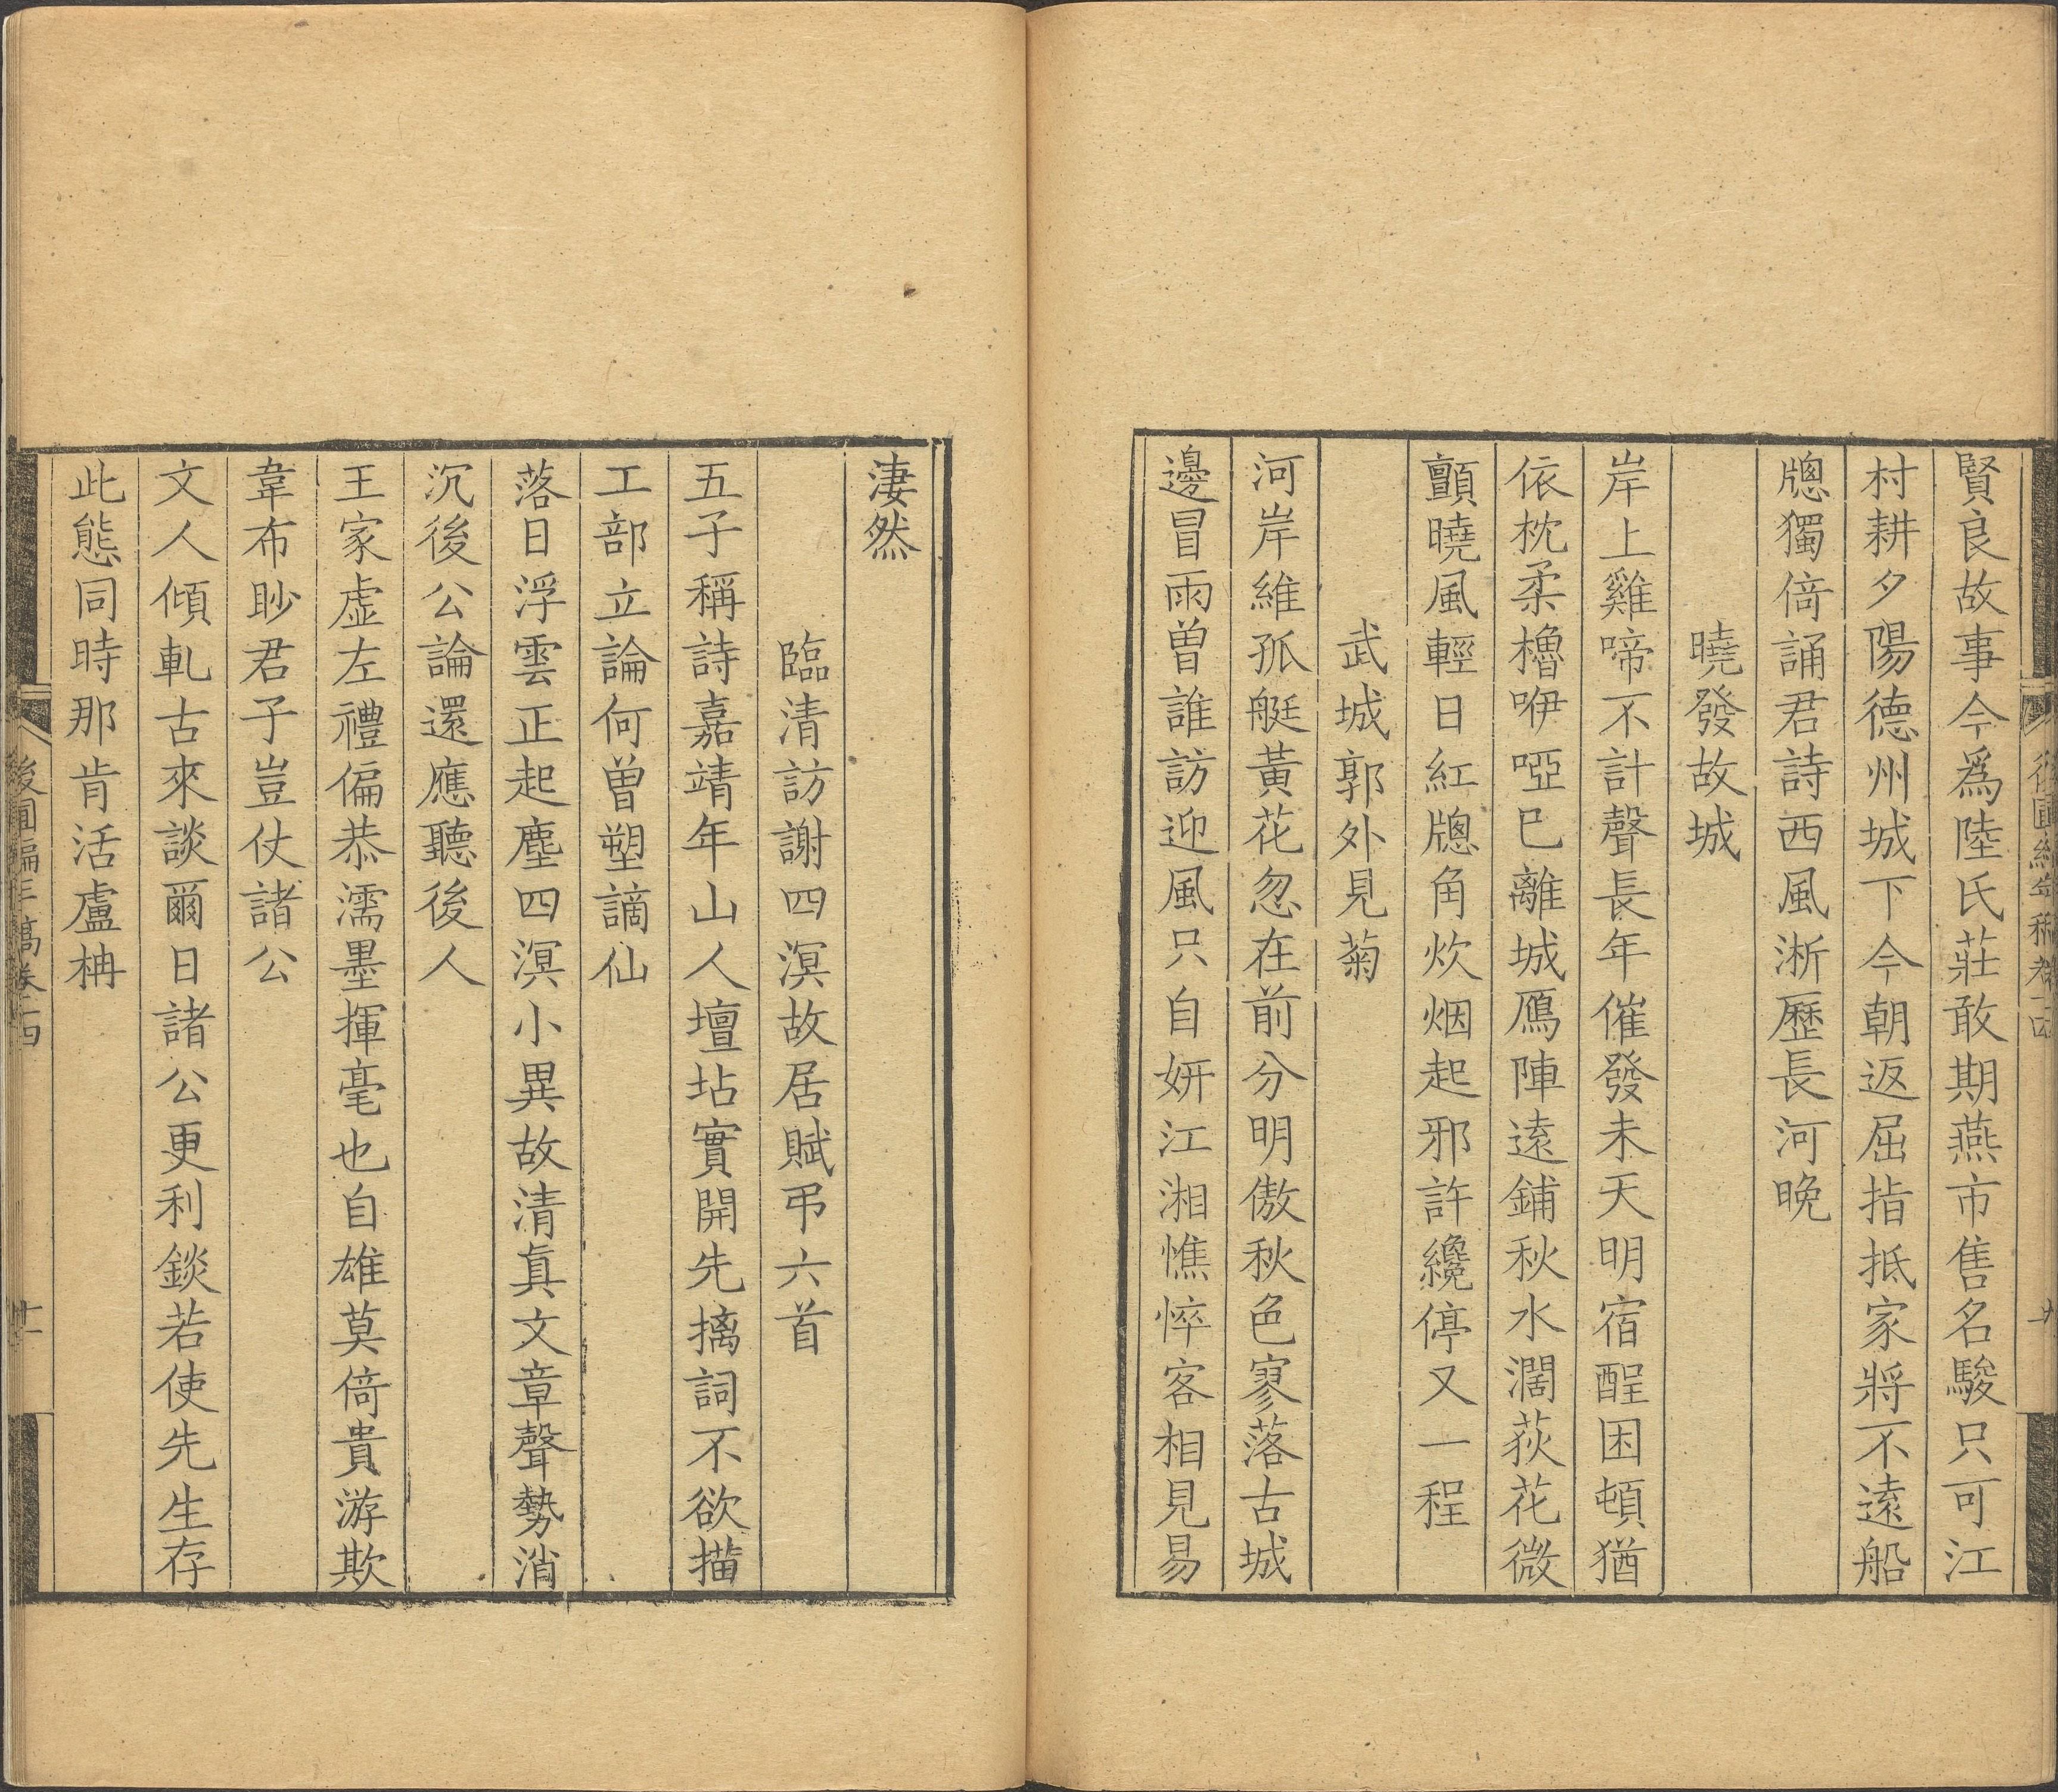 賢良故事今爲陸氏莊敢期燕市售名駿只可江
村耕夕陽德州城下今朝返屈指抵家將不遠船
牎獨倚誦君詩西風淅歷長河晚
曉發故城
岸上雞啼不計聲長年催發未天明宿酲困頓猶
依枕柔櫓咿啞已離城鴈陣遠鋪秋水濶荻花微
顫曉風輕日紅牎角炊烟起邪許纔停又一程
武城郭外見菊
河岸維孤艇黃花忽在前分明傲秋色寥落古城
邊冒雨曾誰訪迎風只自妍江湘憔悴客相見易
淒然
臨清訪謝四溟故居賦弔六首
五子稱詩嘉靖年山人壇坫實開先摛詞不欲描
工部立論何曾塑謫仙
落日浮雲正起塵四溟小異故清真文章聲勢消
沉後公論還應聽後人
王家虛左禮偏恭濡墨揮毫也自雄莫倚貴游欺
韋布眇君子豈仗諸公
文人傾軋古來談爾日諸公更利錟若使先生存
此態同時那肯活盧柟
後圃編年稿卷十四
十一